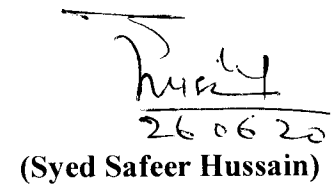 260620
(Syed Safeer Hussain)